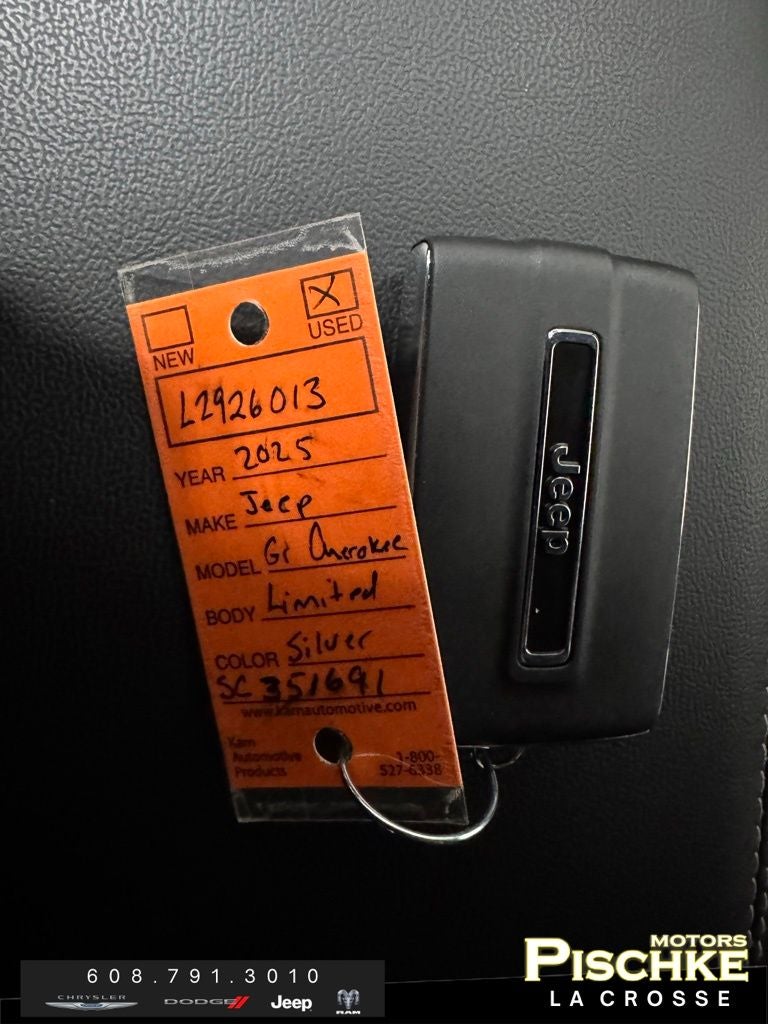 X
NEW USED
L2926013
YEAR 2025
MAKE Jeep
MODEL Gr Cherokee
BODY Limited
COLOR Silver
SC351691
www.karnautomotive.com
Kam
Automotive
Products
1-800-
527-6338
Jeep
608.791.3010
CHRYSLER DODGE Jeep RAM
MOTORS
PISCHKE
LA CROSSE